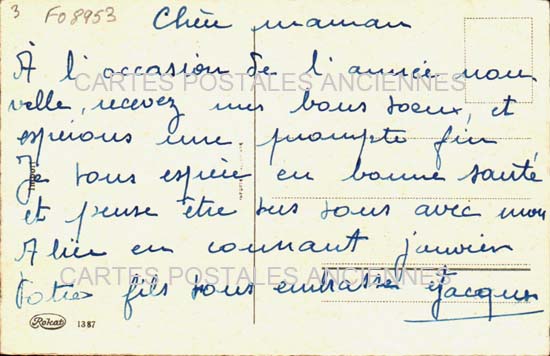 3 FO8953
Chère maman
À l'occasion de l'année nou
velle, recevez mes bons voeux, et
espérons une prompte fin
Je vous espère en bonne santé,
et pense être vers vous avec mon
Alice en courant janvier
Votre fils vous embrasse Jacques
CARTES POSTALES ANCIENNES
CARTES POSTALES ANCIENNES
Rokat 1387